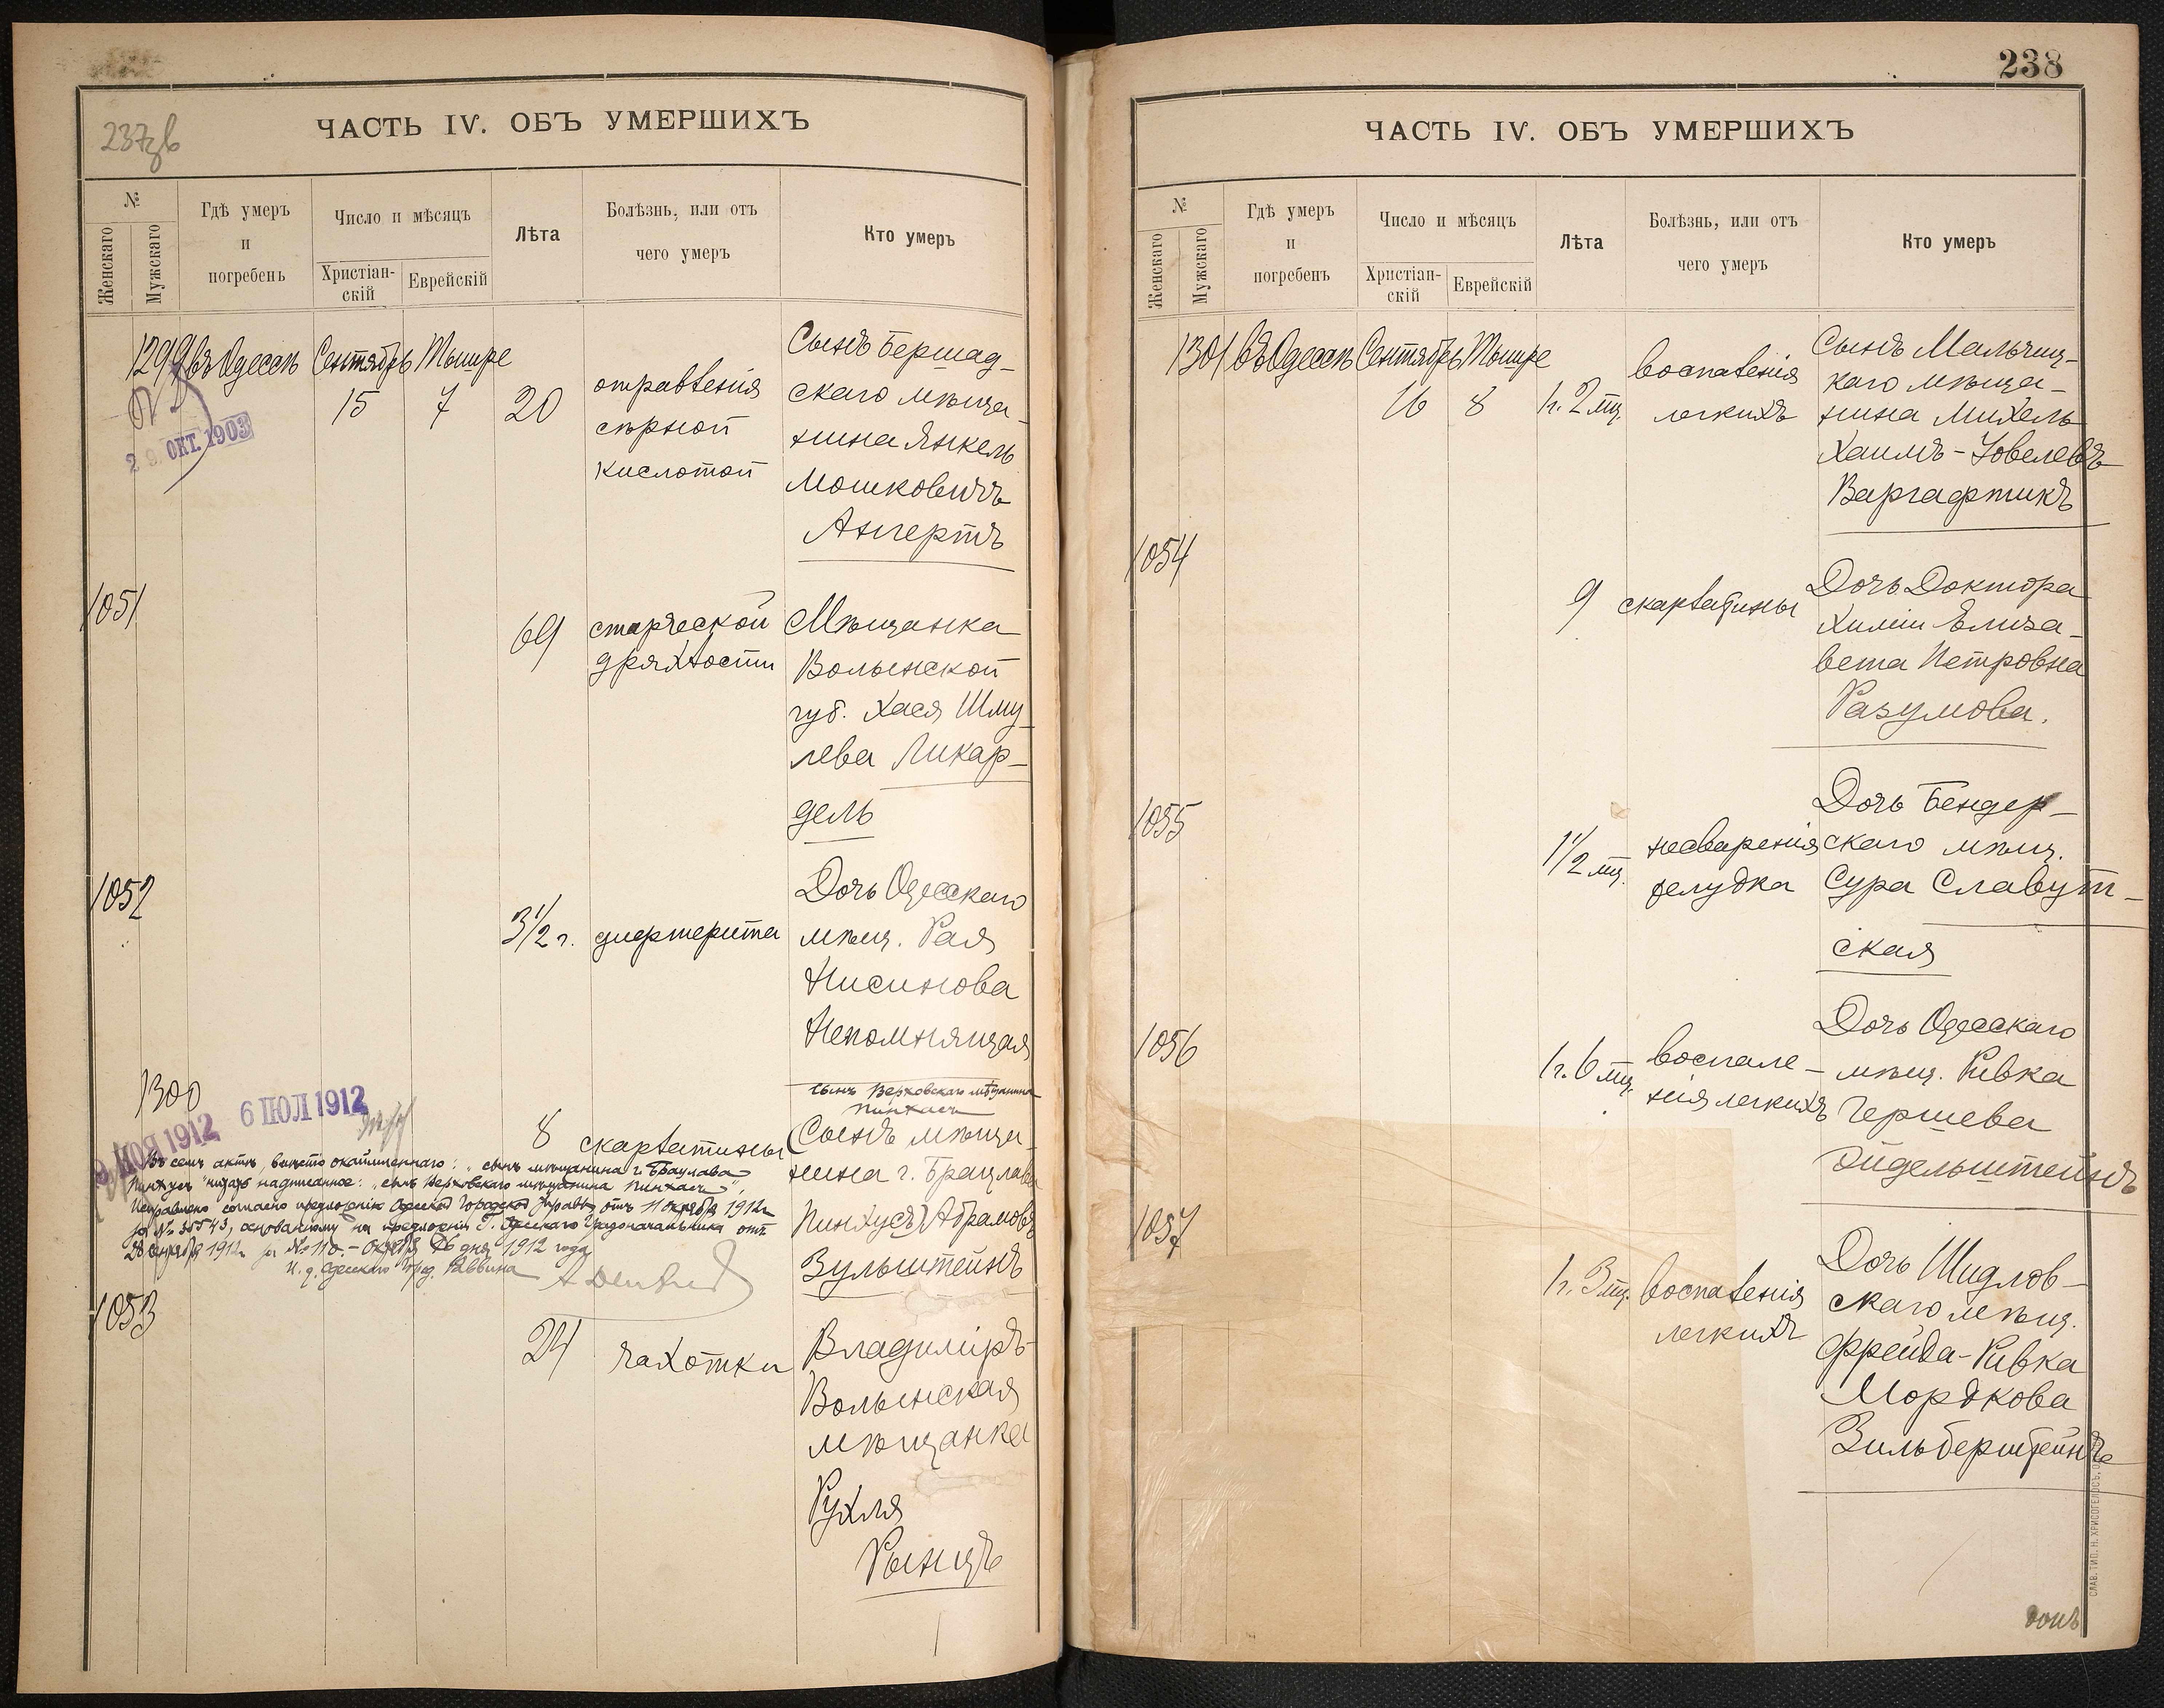 237зв
ЧАСТЬ IV. ОБЪ УМЕРШИХЪ
№
Женскаго
Мужскаго
Гдѣ умеръ
и
погребенъ
Число и мѣсяцъ
Христіан-
скій
Еврейскій
Лѣта
Болѣзнь, или отъ
чего умеръ
Кто умеръ
1299 въ Одессѣ Сентябрь Тышре
15 7 20
отравленія
сѣрной
кислотой
Сынъ Бершад-
скаго мѣща-
нина Янкель
Мошковичъ
Ангертъ
29 ОКТ. 1903
1051
69
старческой
дряхлости
Мѣщанка
Волынской
губ. Хася Шму-
лева Ликар-
дель
1052
3 1/2 г.
дифтерита
Дочь Одесскаго
мѣщ. Рая
Нисинова
Непомнящая
1300
9 НОЯ 1912
6 ІЮЛ 1912
8
скарлатины
сынъ Верховскаго мѣщанина
Пинхасъ
(Сынъ мѣща-
нина г. Брацлава
Пинхусъ) Абрамовъ
Зульштейнъ
Въ семъ актѣ, вмѣсто окаймленнаго: „сынъ мѣщанина г. Брацлава
Пинхусъ" читать надписанное: „сынъ Верховскаго мѣщанина Пинхасъ",
Исправлено согласно предложенію Одесской Городской Управы отъ 11 октября 1912 г.
за № 35543, основанному на предложеніи Г. Одесскаго Градоначальника отъ
28 сентября 1912 г. за № 110. – Октября 26 дня 1912 года
И. д. Одесскаго Град. Раввина
1053
24
чахотки
Владиміръ-
Волынская
мѣщанка
Рухля
Рынцъ
238
ЧАСТЬ IV. ОБЪ УМЕРШИХЪ
№
Женскаго
Мужскаго
Гдѣ умеръ
и
погребенъ
Число и мѣсяцъ
Христіан-
скій
Еврейскій
Лѣта
Болѣзнь, или отъ
чего умеръ
Кто умеръ
1301 въ Одессѣ Сентябрь Тышре
16 8 1 г. 2 мц.
воспаленія
легкихъ
Сынъ Мальчиц-
каго мѣща-
нина Михель
Хаимъ-Іовелевъ
Варгафтикъ
1054
9
скарлатины
Дочь Доктора
Химіи Елиза-
вета Петровна
Разумова.
1055
1 1/2 мц.
несваренія
желудка
Дочь Бендер-
скаго мѣщ.
Сура Славут-
ская
1056
1 г. 6 мц.
воспале-
нія легкихъ
Дочь Одесскаго
мѣщ. Ривка
Гершева
Эйдельштейнъ
1057
1 г. 3 мц.
воспаленія
легкихъ
Дочь Шидлов-
скаго мѣщ.
Фрейда-Ривка
Мордкова
Зильберштейнъ
СЛАВ. ТИП. Н. ХРИСОГЕЛОСЪ, О